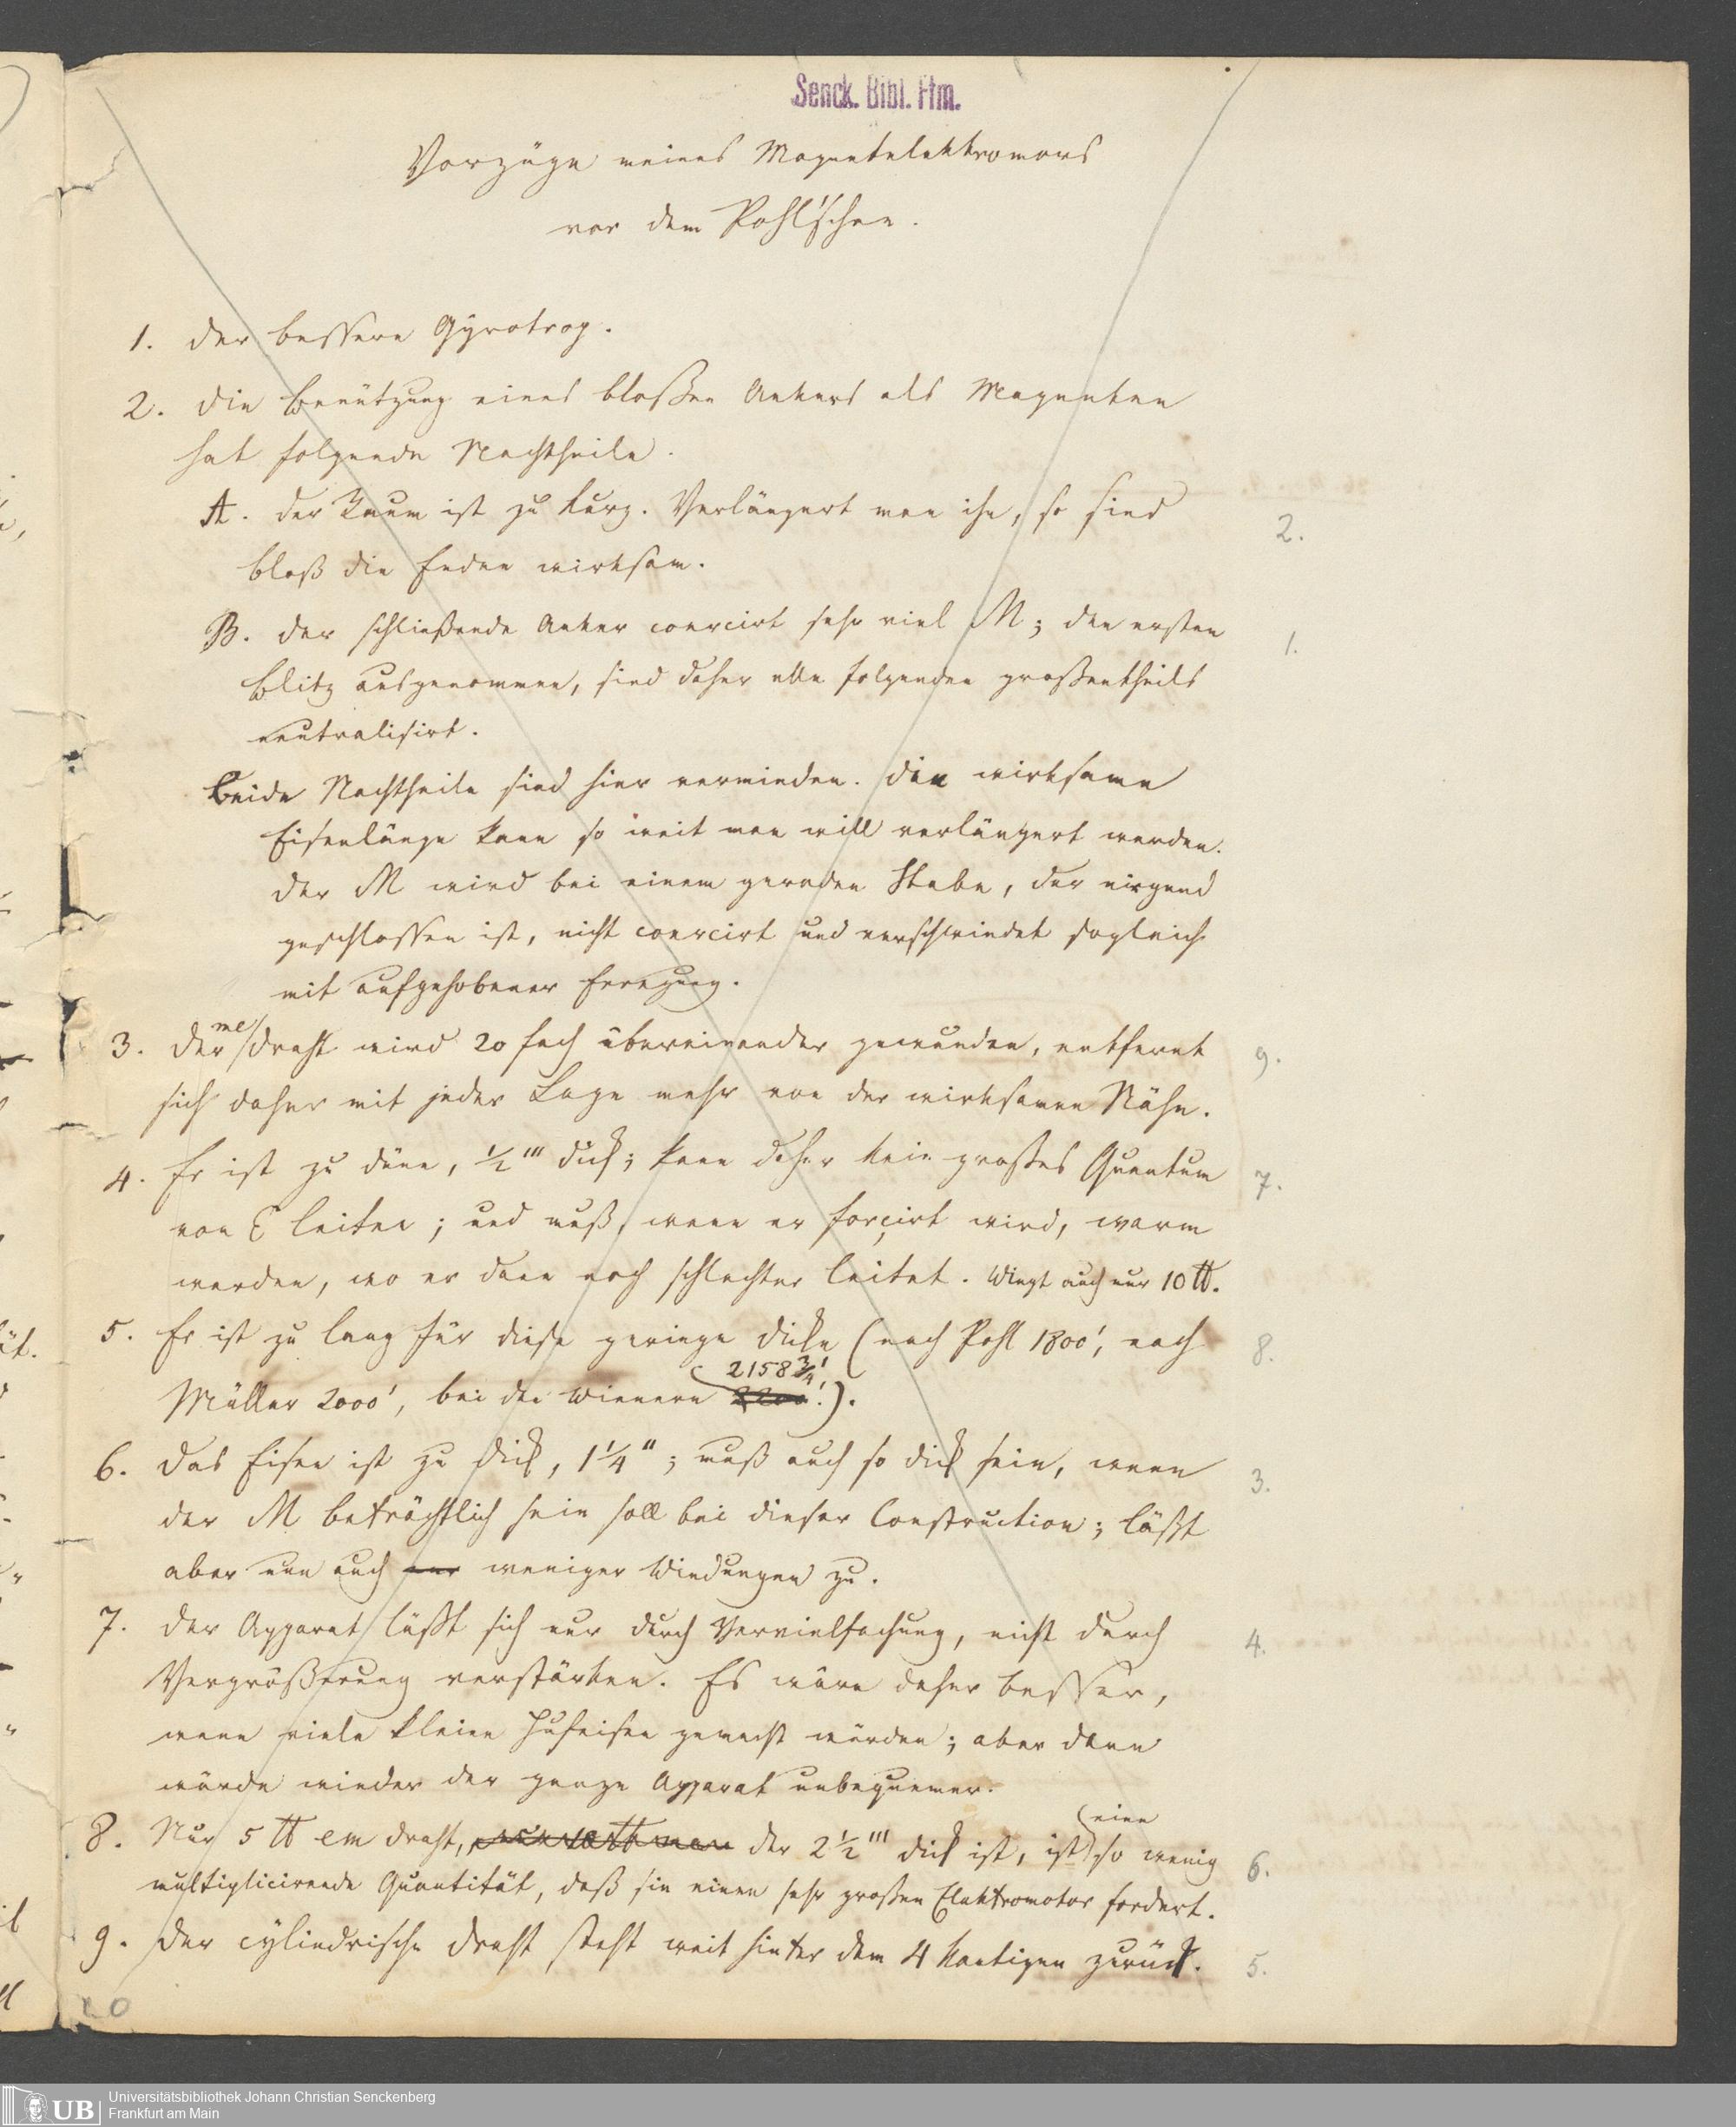 Senck. Bibl. Ffm.
Vorzüge meines Magnetelektromors
vor dem Pohl'schen.
1. Der bessere Gyrotrop.
2. Die Benützung eines bloßen Ankers als Magneten
hat folgende Nachtheile.
A. Der Raum ist zu kurz. Verlängert man ihn, so sind
bloß die Enden wirksam.
2.
B. Der schließende Anker coercirt sehr viel M; den ersten
1.
Blitz ausgenommen, sind daher alle folgenden großentheils
neutralisirt.
Beide Nachtheile sind hier vermieden. Die wirksame
Eisenlänge kann so weit man will verlängert werden.
Der M wird bei einem geraden Stabe, der nirgend
geschlossen ist, nicht coercirt und verschwindet sogleich
mit aufgehobener Erregung.
3. Der me draht wird 20 fach übereinander gewunden, entfernt
9.
sich daher mit jeder Lage mehr von der wirksamen Nähe.
4. Er ist zu dünn, ½''' dick; kann daher kein großes Quantum
7.
von E leiten; und muß, wenn er forçirt wird, warm
werden, wo er dann noch schlechter leitet. Wiegt auch nur 10 ℔.
5. Er ist zu lang für diese geringe Dicke (nach Pohl 1800', nach
8.
2158¾'
Müller 2000', bei den Wienern 2200'.).
6. Das Eisen ist zu dick, 1¼"; muß auch so dick sein, wenn
3.
der M beträchtlich sein soll bei dieser Construction; läßt
aber nun auch nur weniger Windungen zu.
7. Der Apparat läßt sich nur durch Vervielfachung, nicht durch
4.
Vergrößerung verstärken. Es wäre daher besser,
wenn viele kleine Hufeisen gemacht würden; aber dann
würde wieder der ganze Apparat unbequemer.
eine
8. Nur 5 ℔ em draht, der 2½''' dick ist, ist so wenig
6.
multiplicirende Quantität, daß sie einen sehr großen Elektromotor fordert.
9. Der cylindrische Draht steht weit hinter dem 4 kantigen zurück.
5.
20
UB Universitätsbibliothek Johann Christian Senckenberg
Frankfurt am Main